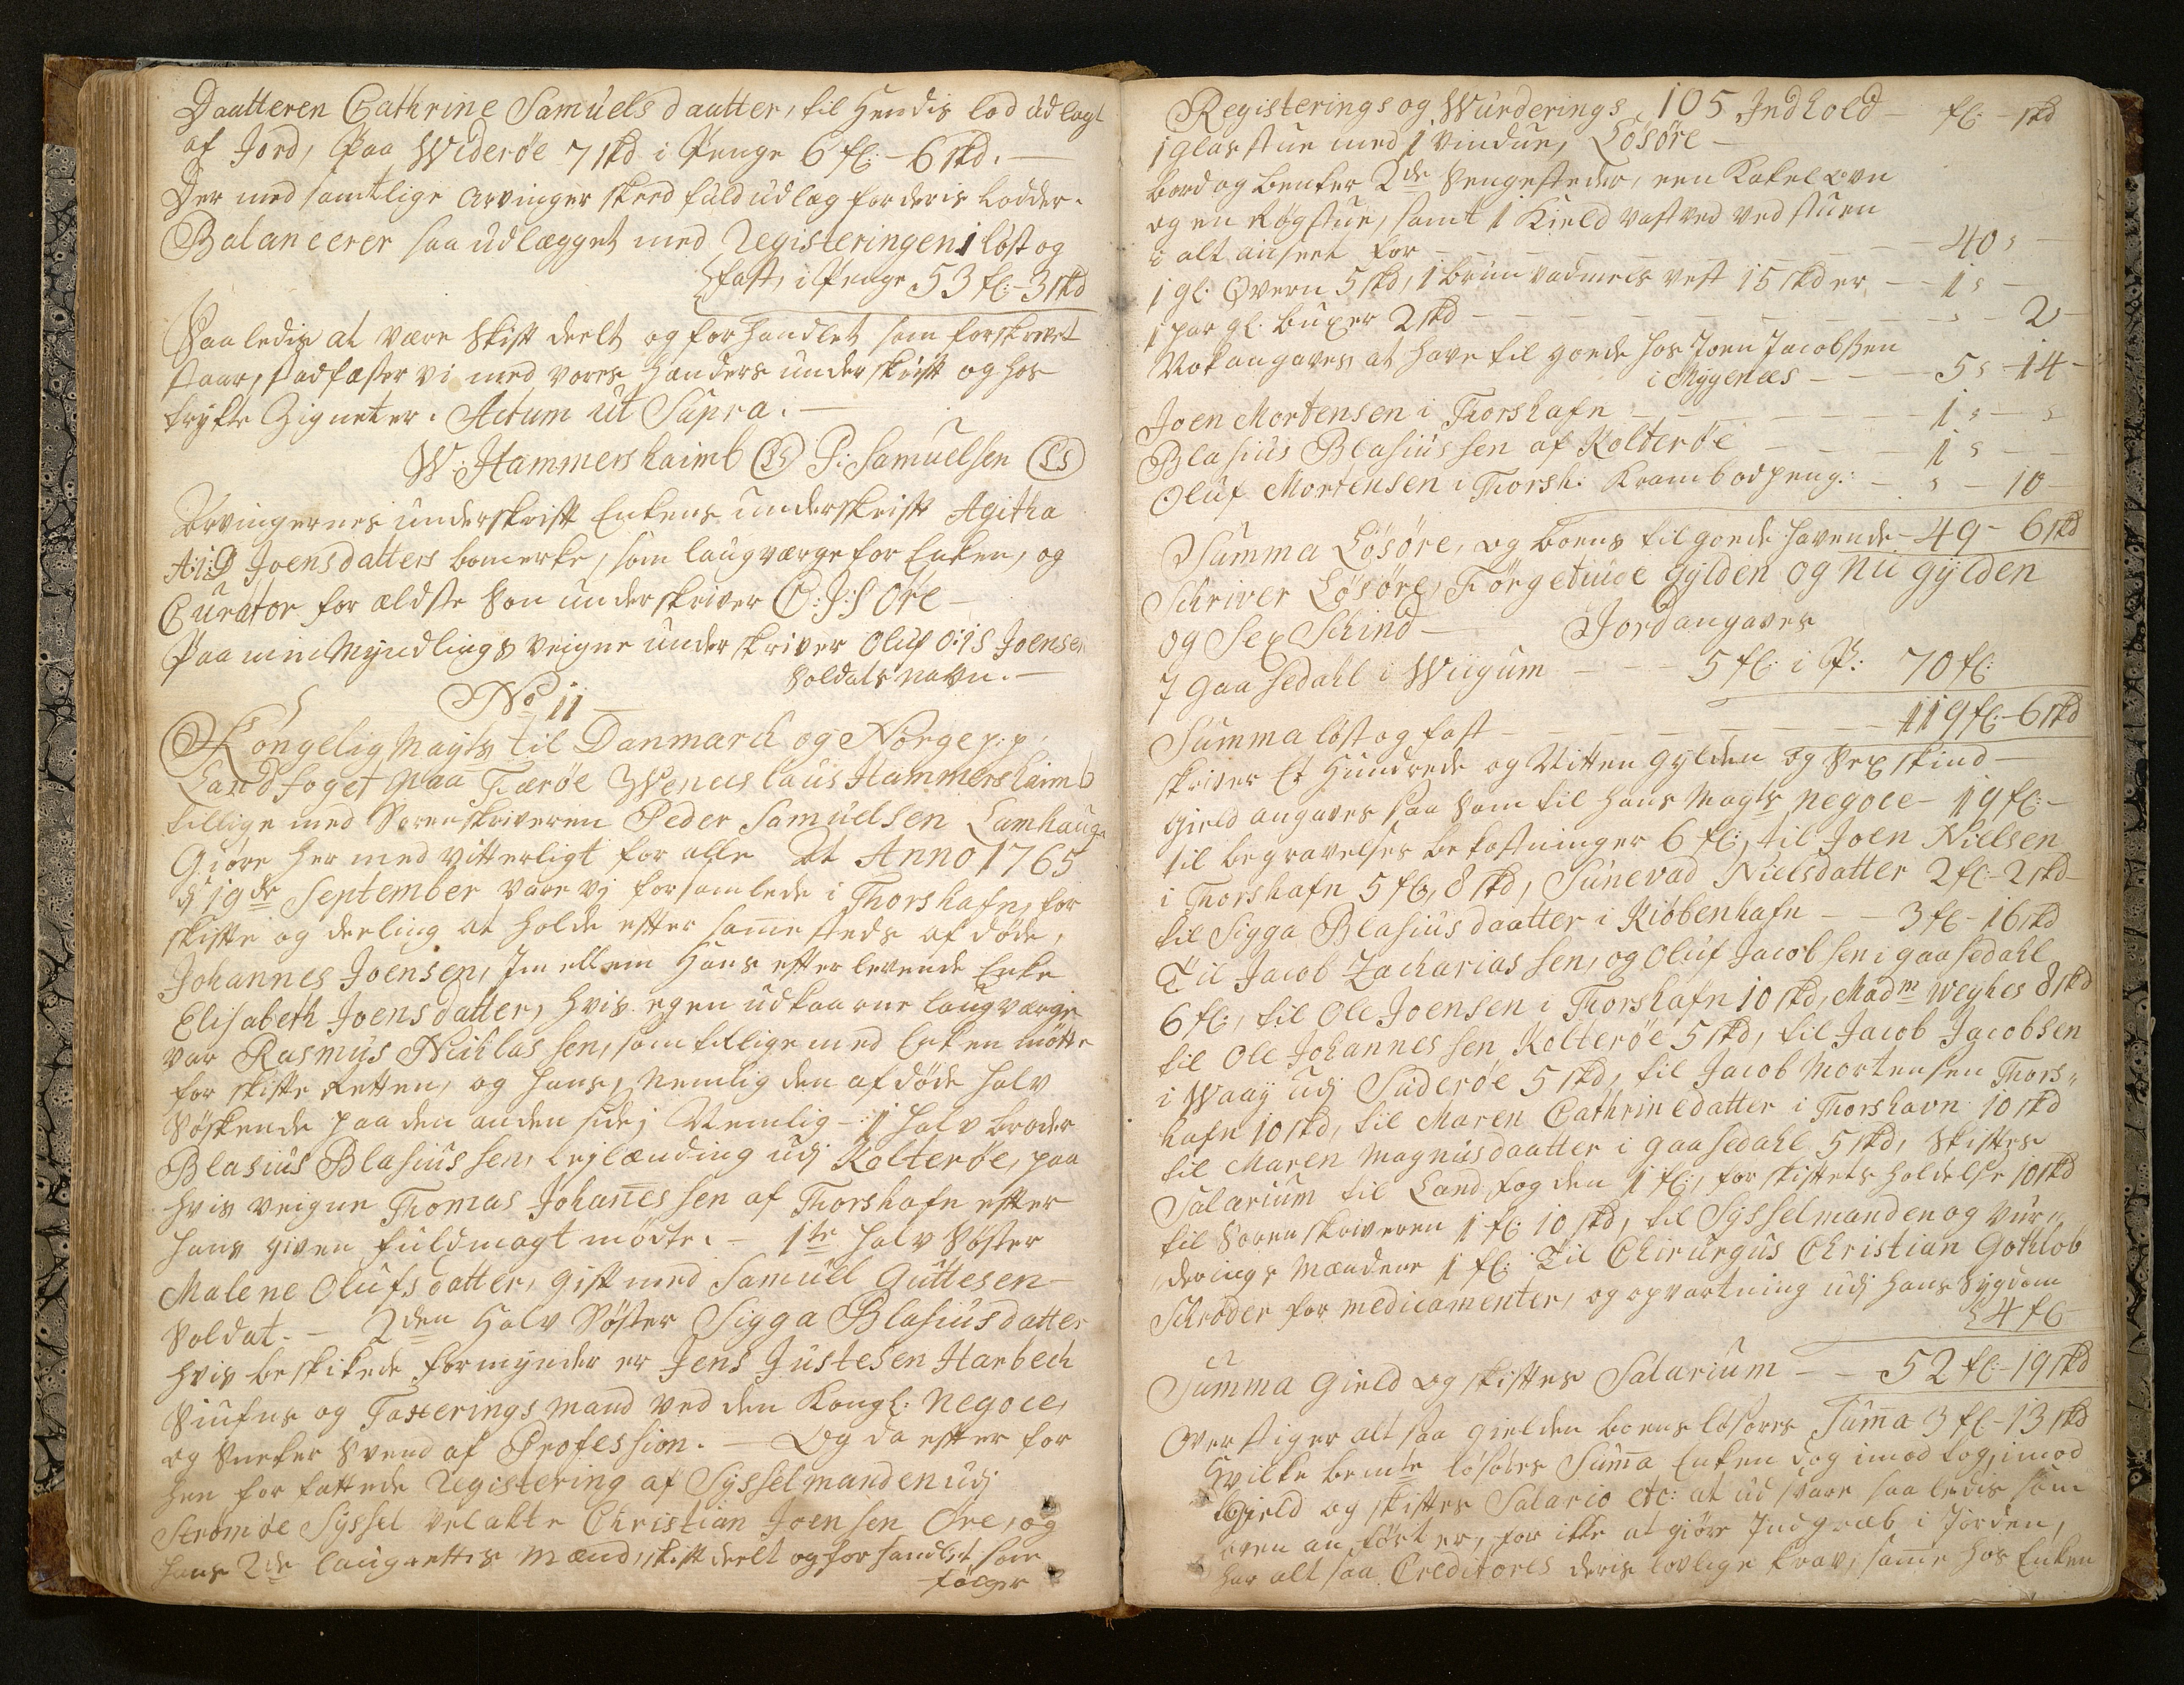 Daatteren Cathrine Samuels daatter, til Hendis lod udlagt
af Jord, Paa Widerøe 7 skd i Penge 6 fl: - 6 skd. -
Der med samtlige arvinger skeed fuld udlæg for deris lodder.
Balancerer saa udlægget med Registeringen i løst og
fast, i Penge 53 fl:- 3 skd
Saaledis at være skift deelt og forhandlet som forskrevet
staar, stadfæster vi med vores Hænders underskrift og hos
trykte Zigneter. Actum ut Supra. -
W: Hammershaimb (LS) P: Samuelsen (LS)
Arvingernes underskrift Enkens underskrift Agitha
A:I:D Joensdatters bomerke, som laugværge for Enken, og
Curator for ældste Søn underskriver C:J:S Øre -
Paa min Myndlings veigne underskriver Oluf O:I:S Joensen
Soldats navn. -
No 11 -
Kongelig Mayts til Danmarck og Norge p: p:
Landfoget paa Færøe Wenceslaus Hammershaimb
tillige med Sorenskriveren Peder Samuelsen Lamhauge
Giøre her med vitterligt for alle At Anno 1765
d 19de September vare vj forsamlede i Thorshafn, for
skifte og deeling at holde efter samme steds afdøde,
Johannes Joensen, Imellem Hans efterlevende Enke
Elisabeth Joensdatter, hvis egen udkaarne laugværge
var Rasmus Nichlassen, som tillige med Enken mötte
for skifte Retten, og hans, Nemlig den afdøde halv
Søskende paa den anden side; Nemlig - 1 halv broder
Blasius Blasiussen, lejlænding udj Kolterøe, paa
hvis veigne Thomas Johannessen af Thorshafn efter
hans given fuldmagt mødte. - 1te halv Søster
Malene Olufsdatter, gift med Samuel Guttesen
Soldat. - 2den Halv Søster Sigga Blasiusdatter
hvis beskikede formynder er Jens Justesen Harbech
og Taxerings mand ved den Kongl: Negoce,
og Sneker Svend af Profession. - Og da efter for
hen forfattede Registering af Sysselmanden udj
Strømøe Syssel velakte Christian Joensen Øre, og
hans 2de laugrettis Mænd, skift deelt og forhandlet som
følger
Registerings og Wurderings 105 Indhold - fl: - skd
1 glas stue med 1 Vindue, Løsøre -
bord og benker 2de Sengesteder, een Kakelovn
og en Røgstue, samt 1 Kield vaft ved ved stuen
i alt anseet for - - - - 40 s -
1 gl: Qvern 5 skd, 1 bruun vadmels vest 15 skd er - - 1 s -
1 par gl: buxer 2 skd - - - - s - 2 -
Nok angaves at have til goede hos Joen Jacobssen
i Myggenæs - - - 5 s - 14 -
Joen Mortensen i Thorshafn - - - - 1 s - s
Blasius Blasiussen af Kolterøe - - - 1 s - -
Oluf Mortensen i Thorsh: Krambodpeng: - s - 10 -
Summa Løsøre, og boens til goede havende - 49 - 6 skd
Schriver Løsøre, Førgetuve Gylden og Nii gylden
og Sex Schind - Jord angaves
7 Gaasedahl i Wiigum - - - 5 fl: i P: 70 fl:
Summa løst og fast - - - - 119 fl:- 6 skd
skriver Et Hundrede og Nitten Gylden og Sex skind -
Gield angaves saa som til hans Mayts negoce - 19 fl: -
til begravelses bekostninger 6 fl:, til Joen Nielsen
i Thorshafn 5 fl:, 8 skd, Sunevad Nielsdatter 2 fl:- 2 skd
til Sigga Blasiusdaatter i Kiøbenhafn - - 3 fl - 16 skd
Til Jacob Zachariassen, og Oluf Jacobsen i gaasedahl
6 fl:, til Ole Joensen i Thorshafn 10 skd, Madm Weyhes 8 skd
til Ole Johannessen Kolterøe 5 skd, til Jacob Jacobsen
i Waag udj Suderøe 5 skd, til Jacob Mortensen Thors-
hafn 10 skd, til Maren Cathrinedatter i Thorshavn 10 skd
til Maren Magnusdaatter i gaasedahl 5 skd, Skiftes
Salarium til Landfogden 1 fl:, for skiftets holdelse 10 skd
til Sorenskriveren 1 fl: 10 skd, til Sysselmanden og Vur-
derings Mændene 1 fl: Til Chirurgus Christian Gothlob
Schrøder for medicamenter, og opvartning udj hans Sygdom
4 fl -
Summa Gield og skiftes Salarium - - 52 fl:- 19 skd
Overstiger altsaa gielden boens løsøres Summa 3 fl - 13 skd
Hvilke bemte løsøres Summa Enken dog imod tog, imod
Gield og skiftes Salario etc: at ud svare saaledis som
oven anført er, for ikke at giøre Indgreb i Jorden,
har alt saa Creditores deris lovlige krav, samme hos Enken